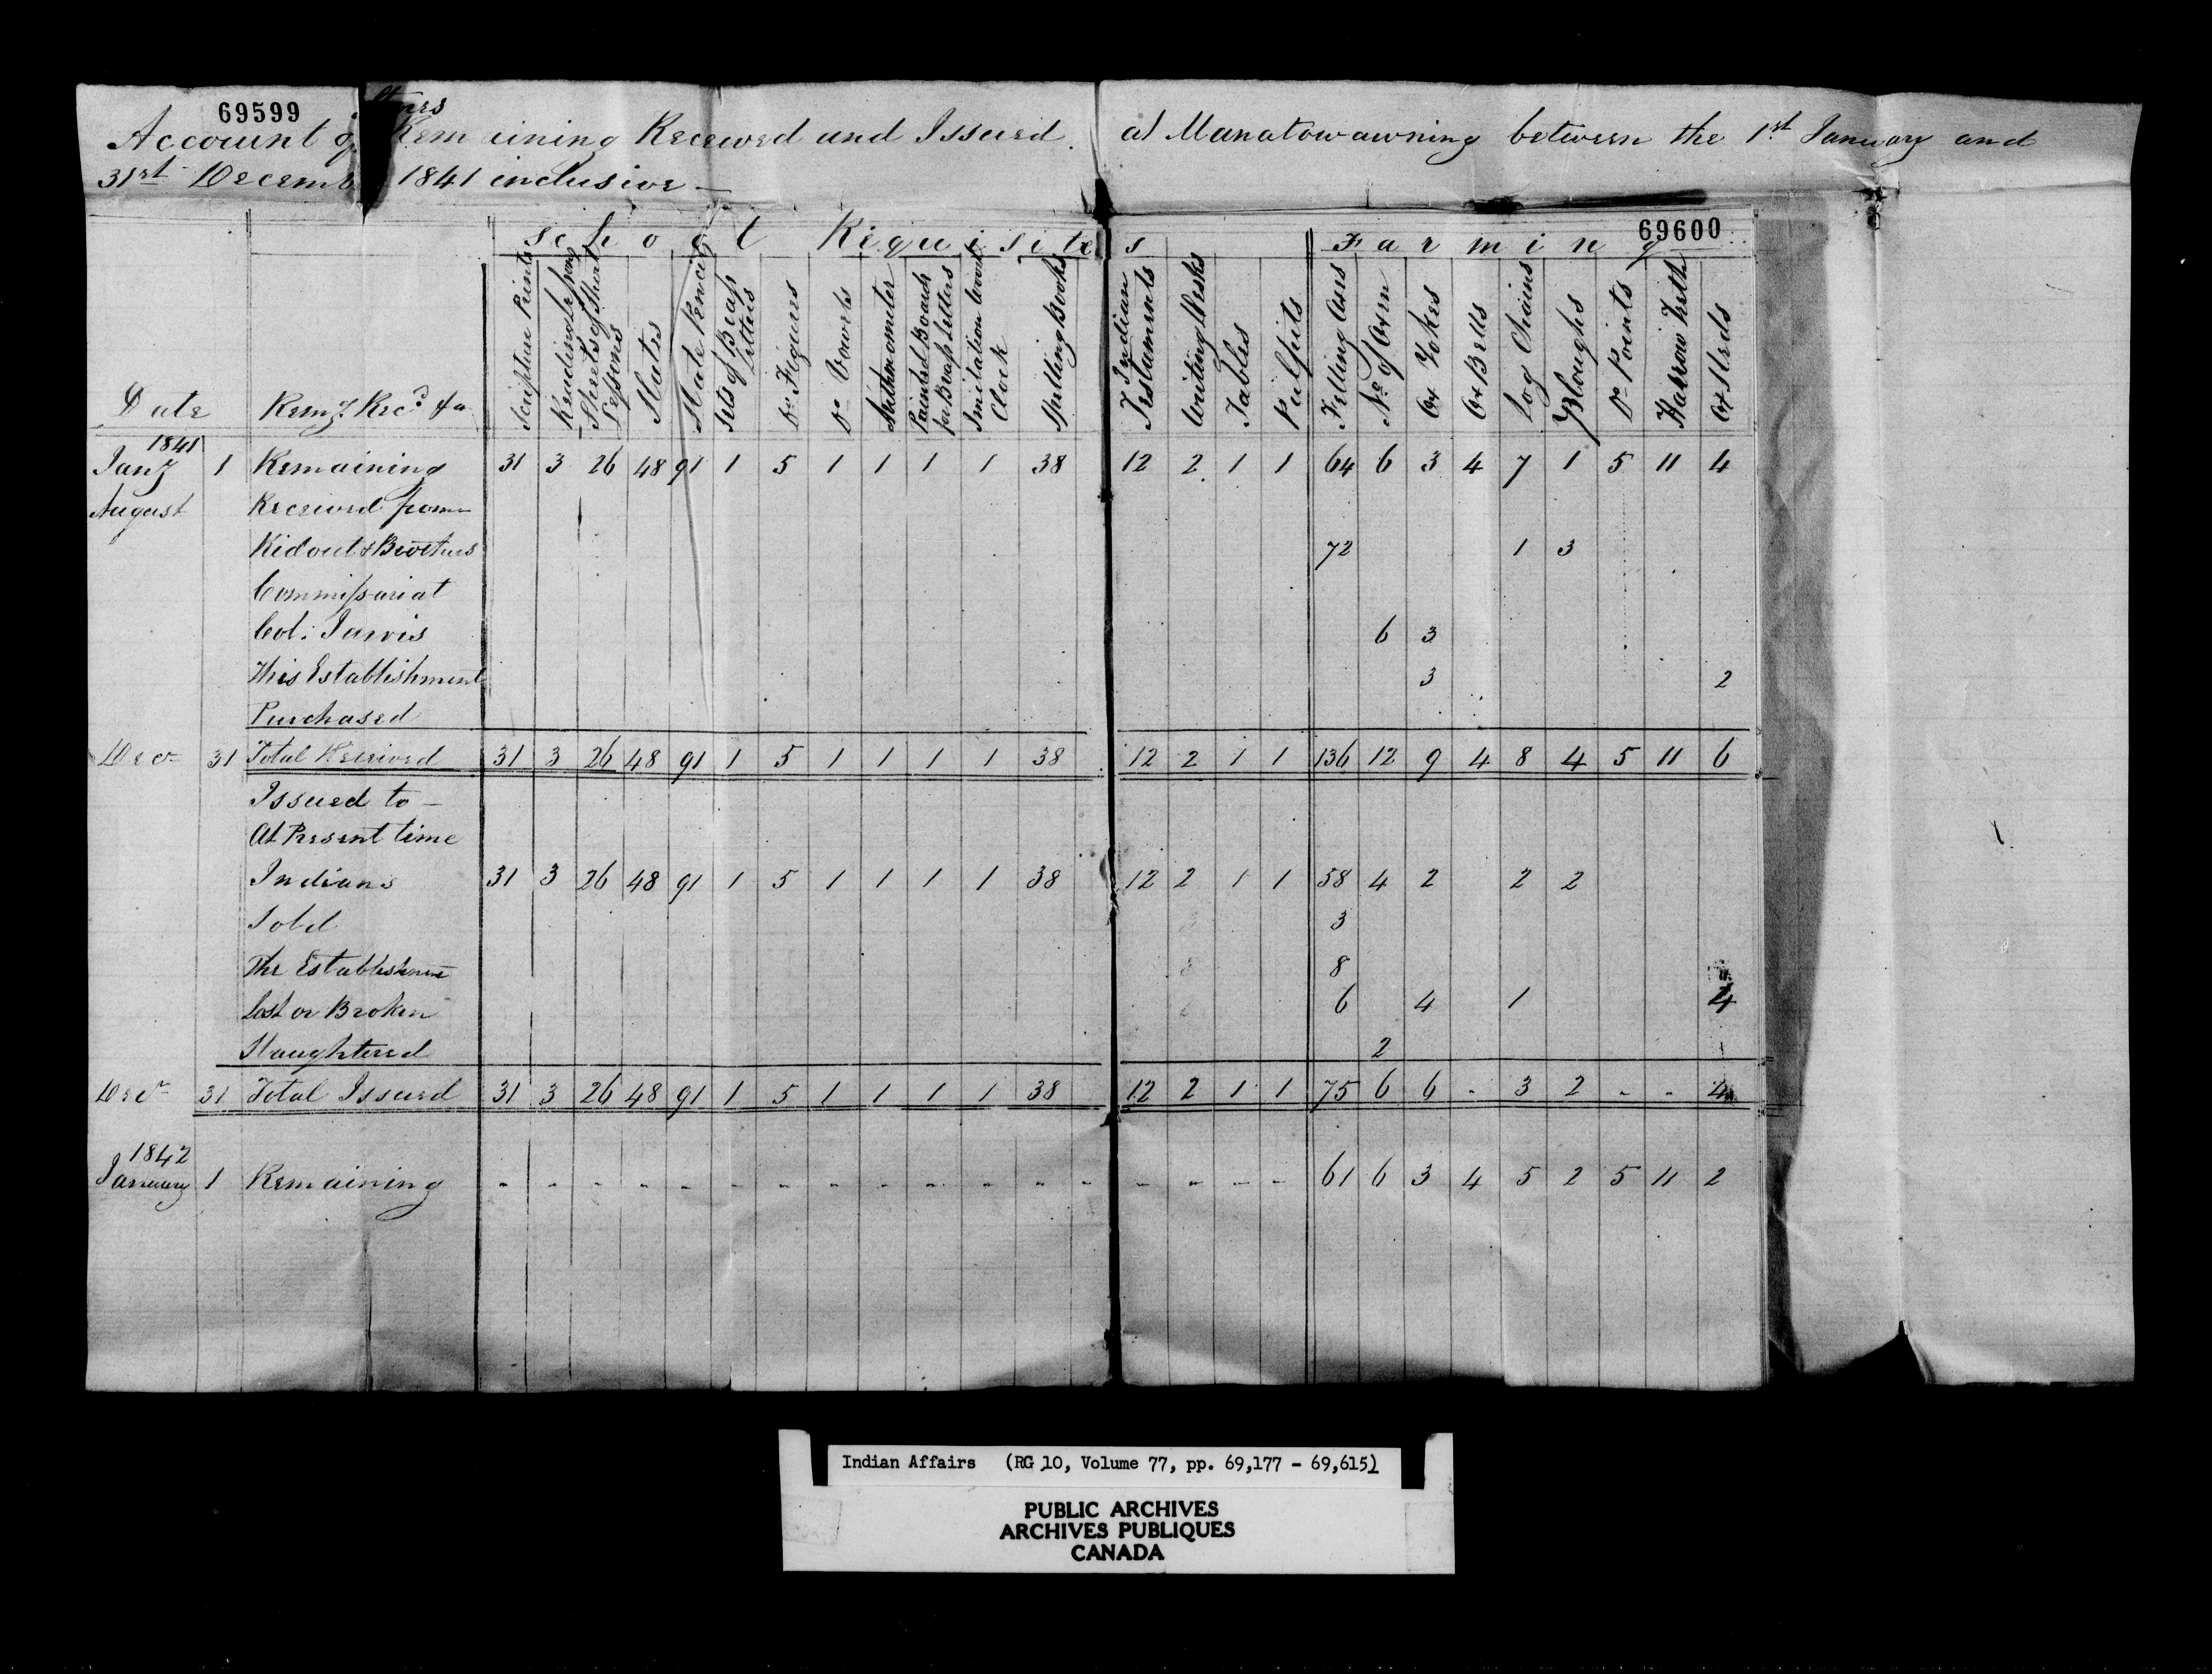 69599
Stores
Account of Remaining Received and Issued at Manatowawning between the 1st January and
31st December 1841 inclusive —
School Requisites Farming
69600
Date Remg Recd &a Scripture Prints Reading Lessons Sheets of Short Lessons Slates Slate Pencils Sets of Brass Letters Do Figures Do Vowels Arithmometer Painted Boards for Brass Letters Imitation Clock Spelling Books Indian Testaments Writing Desks Tables Pulpits Felling Axes No of Oxen Ox Yokes Ox Bells Log Chains Ploughs Do Points Harrow Teeth Ox Sleds
1841
Jany 1 Remaining 31 3 26 48 91 1 5 1 1 1 1 38 12 2 1 1 64 6 3 4 7 1 5 11 4
August Received from
Ridout & Brothers 72 1 3
Commissariat
Col: Jarvis 6 3
This Establishment 3 2
Purchased
Decr 31 Total Received 31 3 26 48 91 1 5 1 1 1 1 38 12 2 1 1 136 12 9 4 8 4 5 11 6
Issued to —
At Present time
Indians 31 3 26 48 91 1 5 1 1 1 1 38 12 2 1 1 58 4 2 2 2
Sold 3
The Establishmt 8
Lost or Broken 6 4 1 4
Slaughtered 2
Decr 31 Total Issued 31 3 26 48 91 1 5 1 1 1 1 38 12 2 1 1 75 6 6 - 3 2 - - 4
1842
January 1 Remaining - - - - - - - - - - - - - - - - - 61 6 3 4 5 2 5 11 2
Indian Affairs (RG 10, Volume 77, pp. 69,177 - 69,615)
PUBLIC ARCHIVES
ARCHIVES PUBLIQUES
CANADA